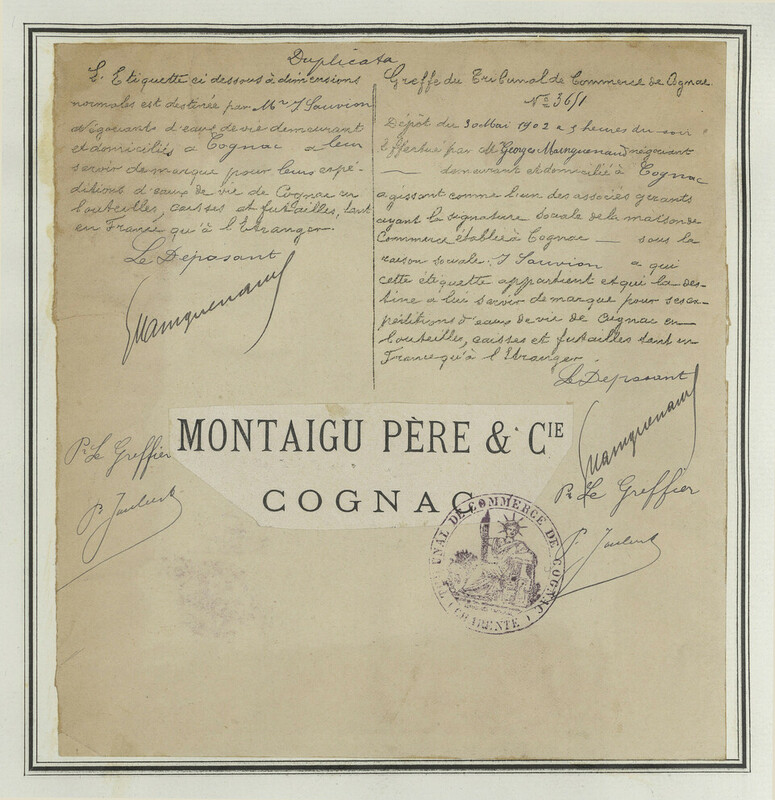 Duplicata
L'Etiquette ci dessous à dimensions
normales est destinée par Mr J Sauvion
négociants d'eaux de vie demeurant
et domiciliés à Cognac a leur
servir de marque pour leurs expé-
ditions d'eaux de vie de Cognac en
bouteilles, caisses et futailles, tant
en France qu'à l'Etranger.
Le Déposant
Mainguenaud
Pr Le Greffier
P. Joubert
Greffe du Tribunal de Commerce de Cognac
No 36/1
Dépôt du 30 Mai 1902 à 5 heures du soir
Effectué par M Georges Mainguenaud négociant
— demeurant et domicilié à Cognac
agissant comme l'un des associés gérants
ayant la signature sociale de la maison de
Commerce établie à Cognac — sous la
raison sociale: J Sauvion a qui
cette étiquette appartient et qui la des-
tine a lui servir de marque pour ses ex-
péditions d'eaux de vie de Cognac en
bouteilles, caisses et futailles tant en
France qu'à l'Etranger
Le Déposant
Mainguenaud
Pr Le Greffier
P. Joubert
MONTAIGU PÈRE & CIE
COGNAC
TRIBUNAL DE COMMERCE DE COGNAC
(CHARENTE)